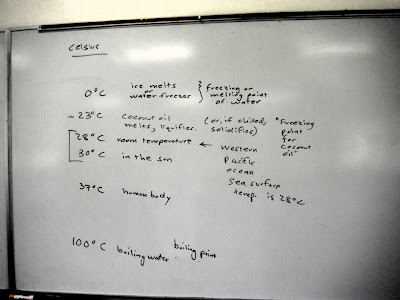 Celsius
0°C ice melts or water freezes } freezing or melting point of water
~ 23°C Coconut oil melts, liquifies. (or, if chilled, solidifies) "Freezing point for coconut oil"
28°C room temperature ← western pacific ocean sea surface temp. is 28°C
30°C in the sun
37°C human body
100°C boiling water boiling point